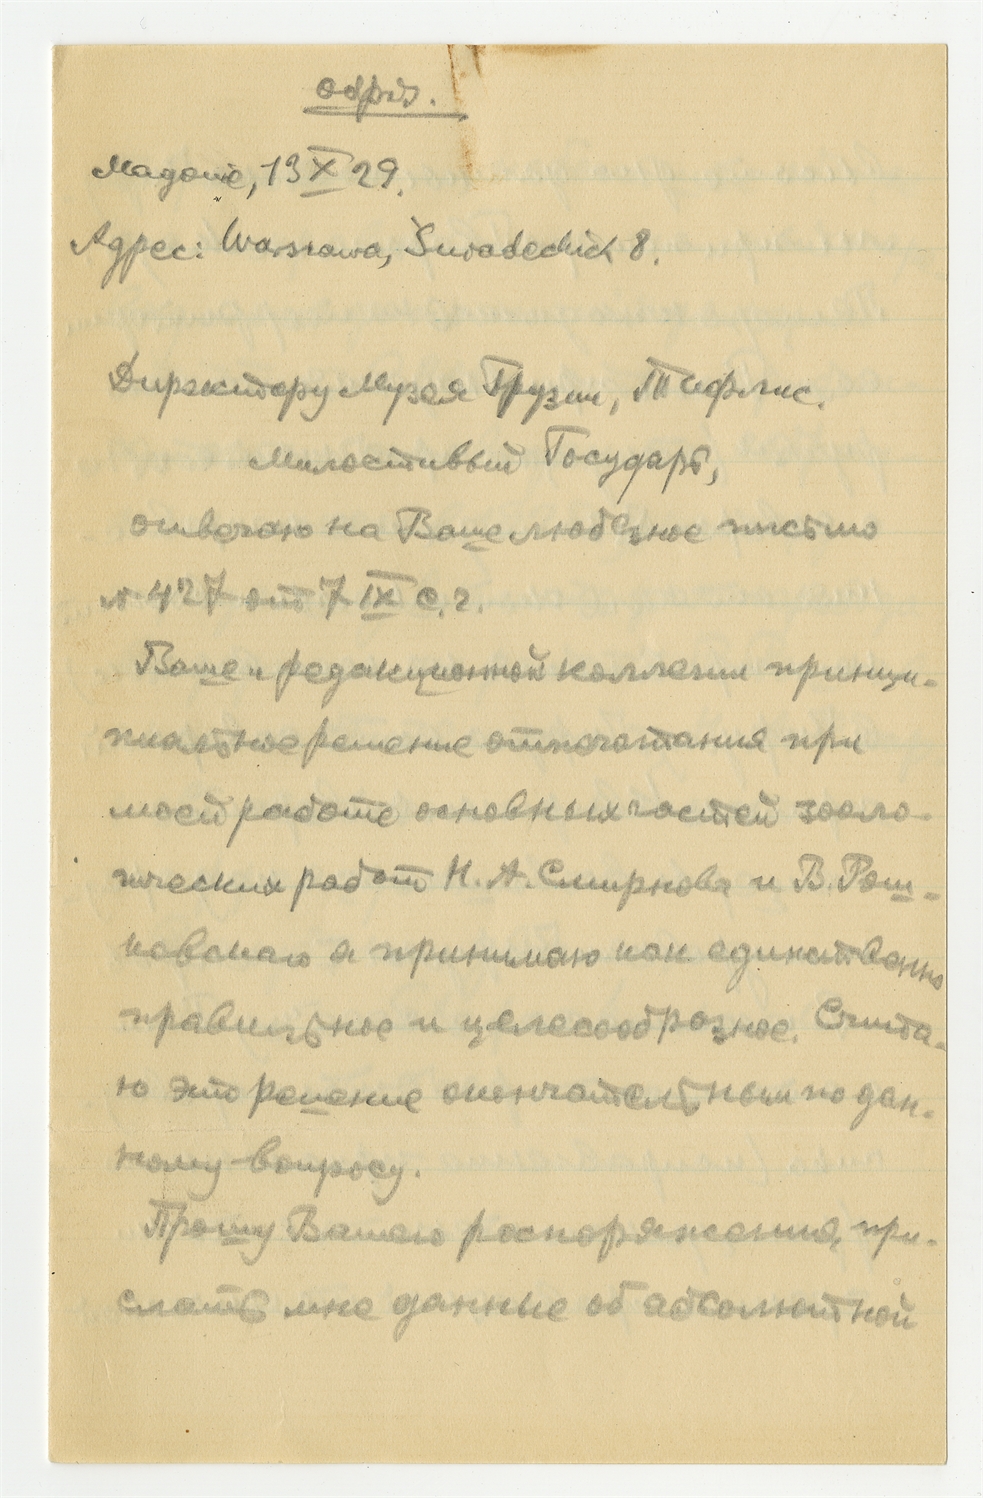 Мадоне, 13 X 29.
Адрес: Warszawa, Śniadeckich 8.
Директору Музея Грузии, Тифлис.
Милостивый Государь,
отвечаю на Ваше любезное письмо
№ 427 от 7 IX с. г.
Ваше и редакционной коллегии принци-
пиальное решение отпечатания при
моей работе основных частей зооло-
гических работ Н. А. Смирнова и В. Рош-
ковскаго я принимаю как единственно
правильное и целесообразное. Считa-
ю это решение окончательным по дан-
ному вопросу.
Прошу Вашего распоряжения, при-
слать мне данные об абсолютной